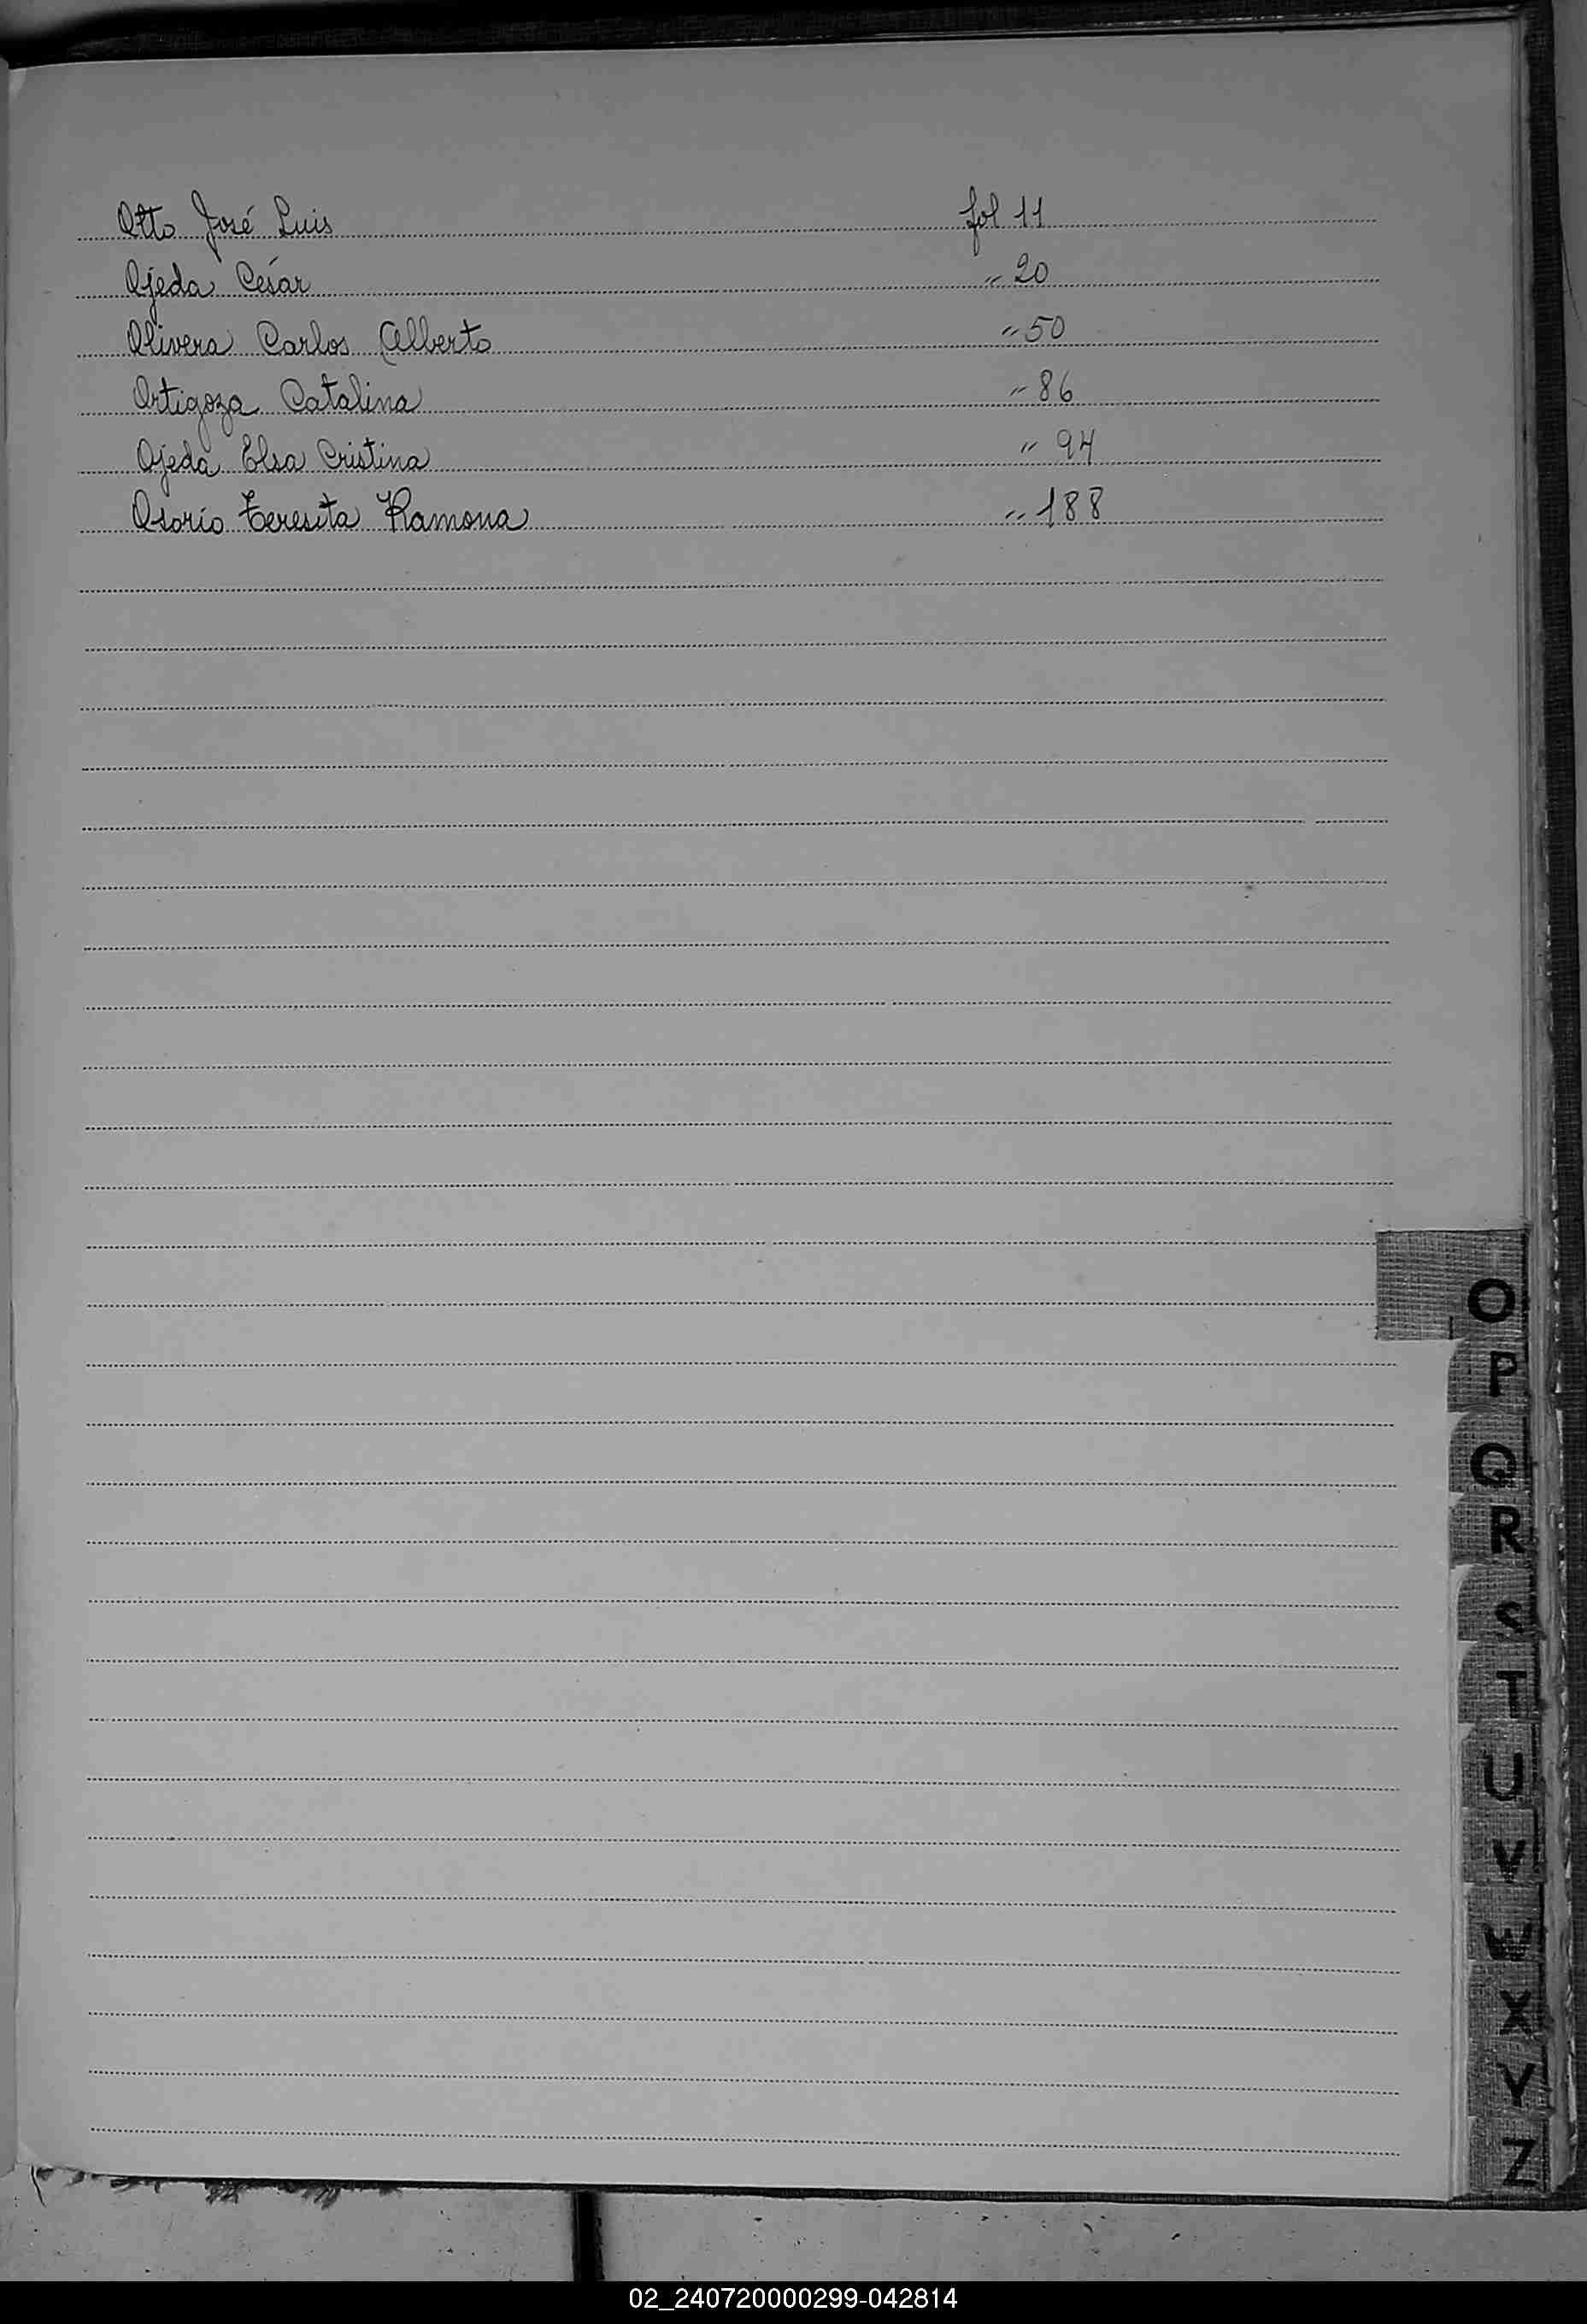 Otto José Luis fol 11
Ojeda César " 20
Olivera Carlos Alberto " 50
Ortigoza Catalina " 86
Ojeda Elsa Cristina " 94
Osorio Teresita Ramona " 188
O
P
Q
R
S
T
U
V
W
X
Y
Z
02_240720000299-042814